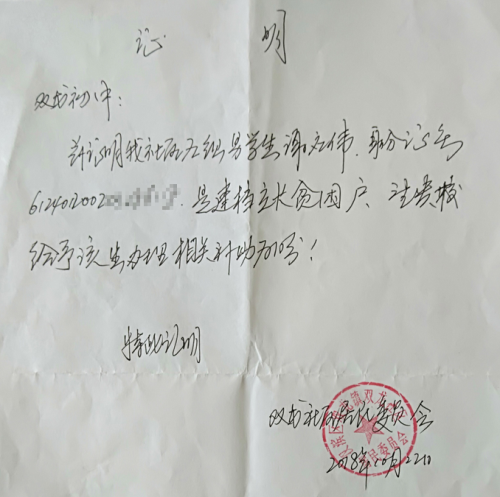 证 明
双龙初中：
兹证明我社区五组男学生谢立伟，身份证号
6124012002 是建档立卡贫困户、注贵校
给予该生办理相关补助为盼！
特此证明
双龙社区居民委员会
2018年10月22日